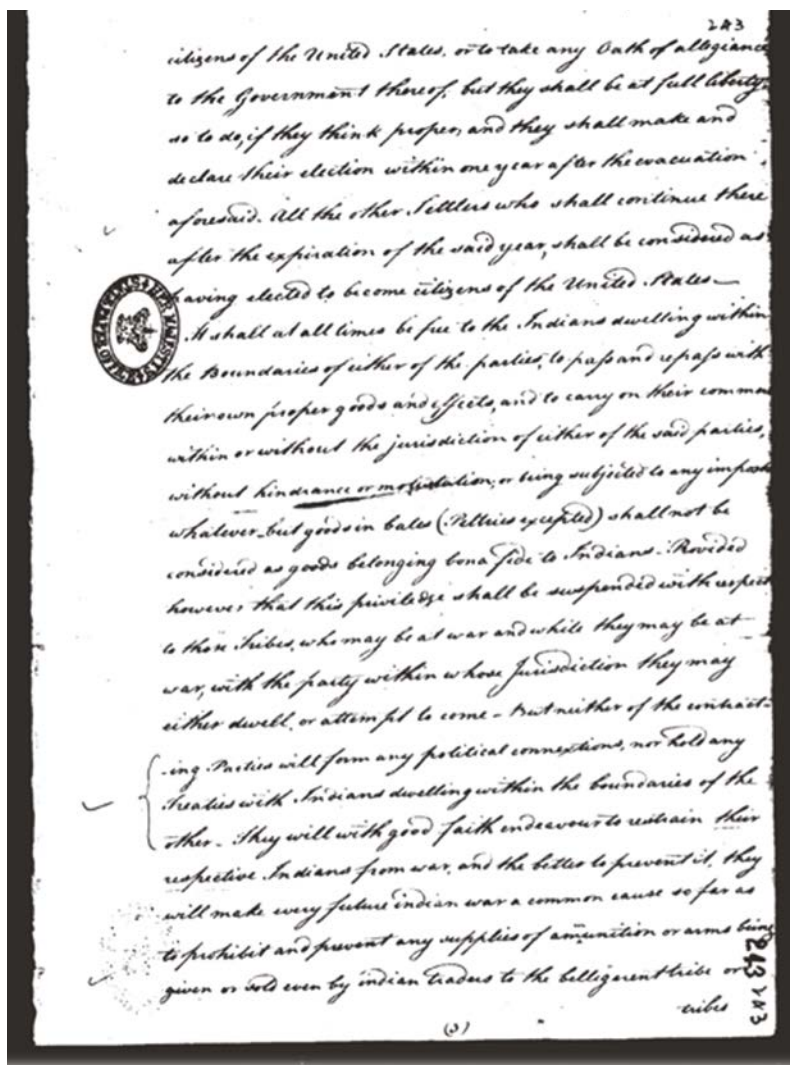 243
citizens of the United States, or to take any Oath of allegiance
to the Government thereof, but they shall be at full liberty
so to do, if they think proper, and they shall make and
declare their election within one year after the evacuation
aforesaid. All the other Settlers who shall continue there
after the expiration of the said year, shall be considered as
having elected to become citizens of the United States—
It shall at all times be free to the Indians dwelling within
the Boundaries of either of the parties, to pass and repass with
their own proper goods and effects, and to carry on their comme
within or without the jurisdiction of either of the said parties,
without hindrance or molestation, or being subjected to any imposts
whatever, but goods in bales (Peltries excepted) shall not be
considered as goods belonging bona fide to Indians - Provided
however that this priviledge shall be suspended with respect
to those Tribes, who may be at war and while they may be at
war, with the party within whose Jurisdiction they may
either dwell, or attempt to come - But neither of the contract-
-ing Parties will form any political connextions, nor hold any
Treaties with Indians dwelling within the boundaries of the
other - They will with good faith endeavour to restrain their
respective Indians from war, and the better to prevent it, they
will make every future indian war a common cause so far as
to prohibit and prevent any supplies of amunition or arms being
given or sold even by indian traders to the belligerent tribe or
tribes
(3)
243
243
HER MAJESTY'S STATE PAPER OFFICE